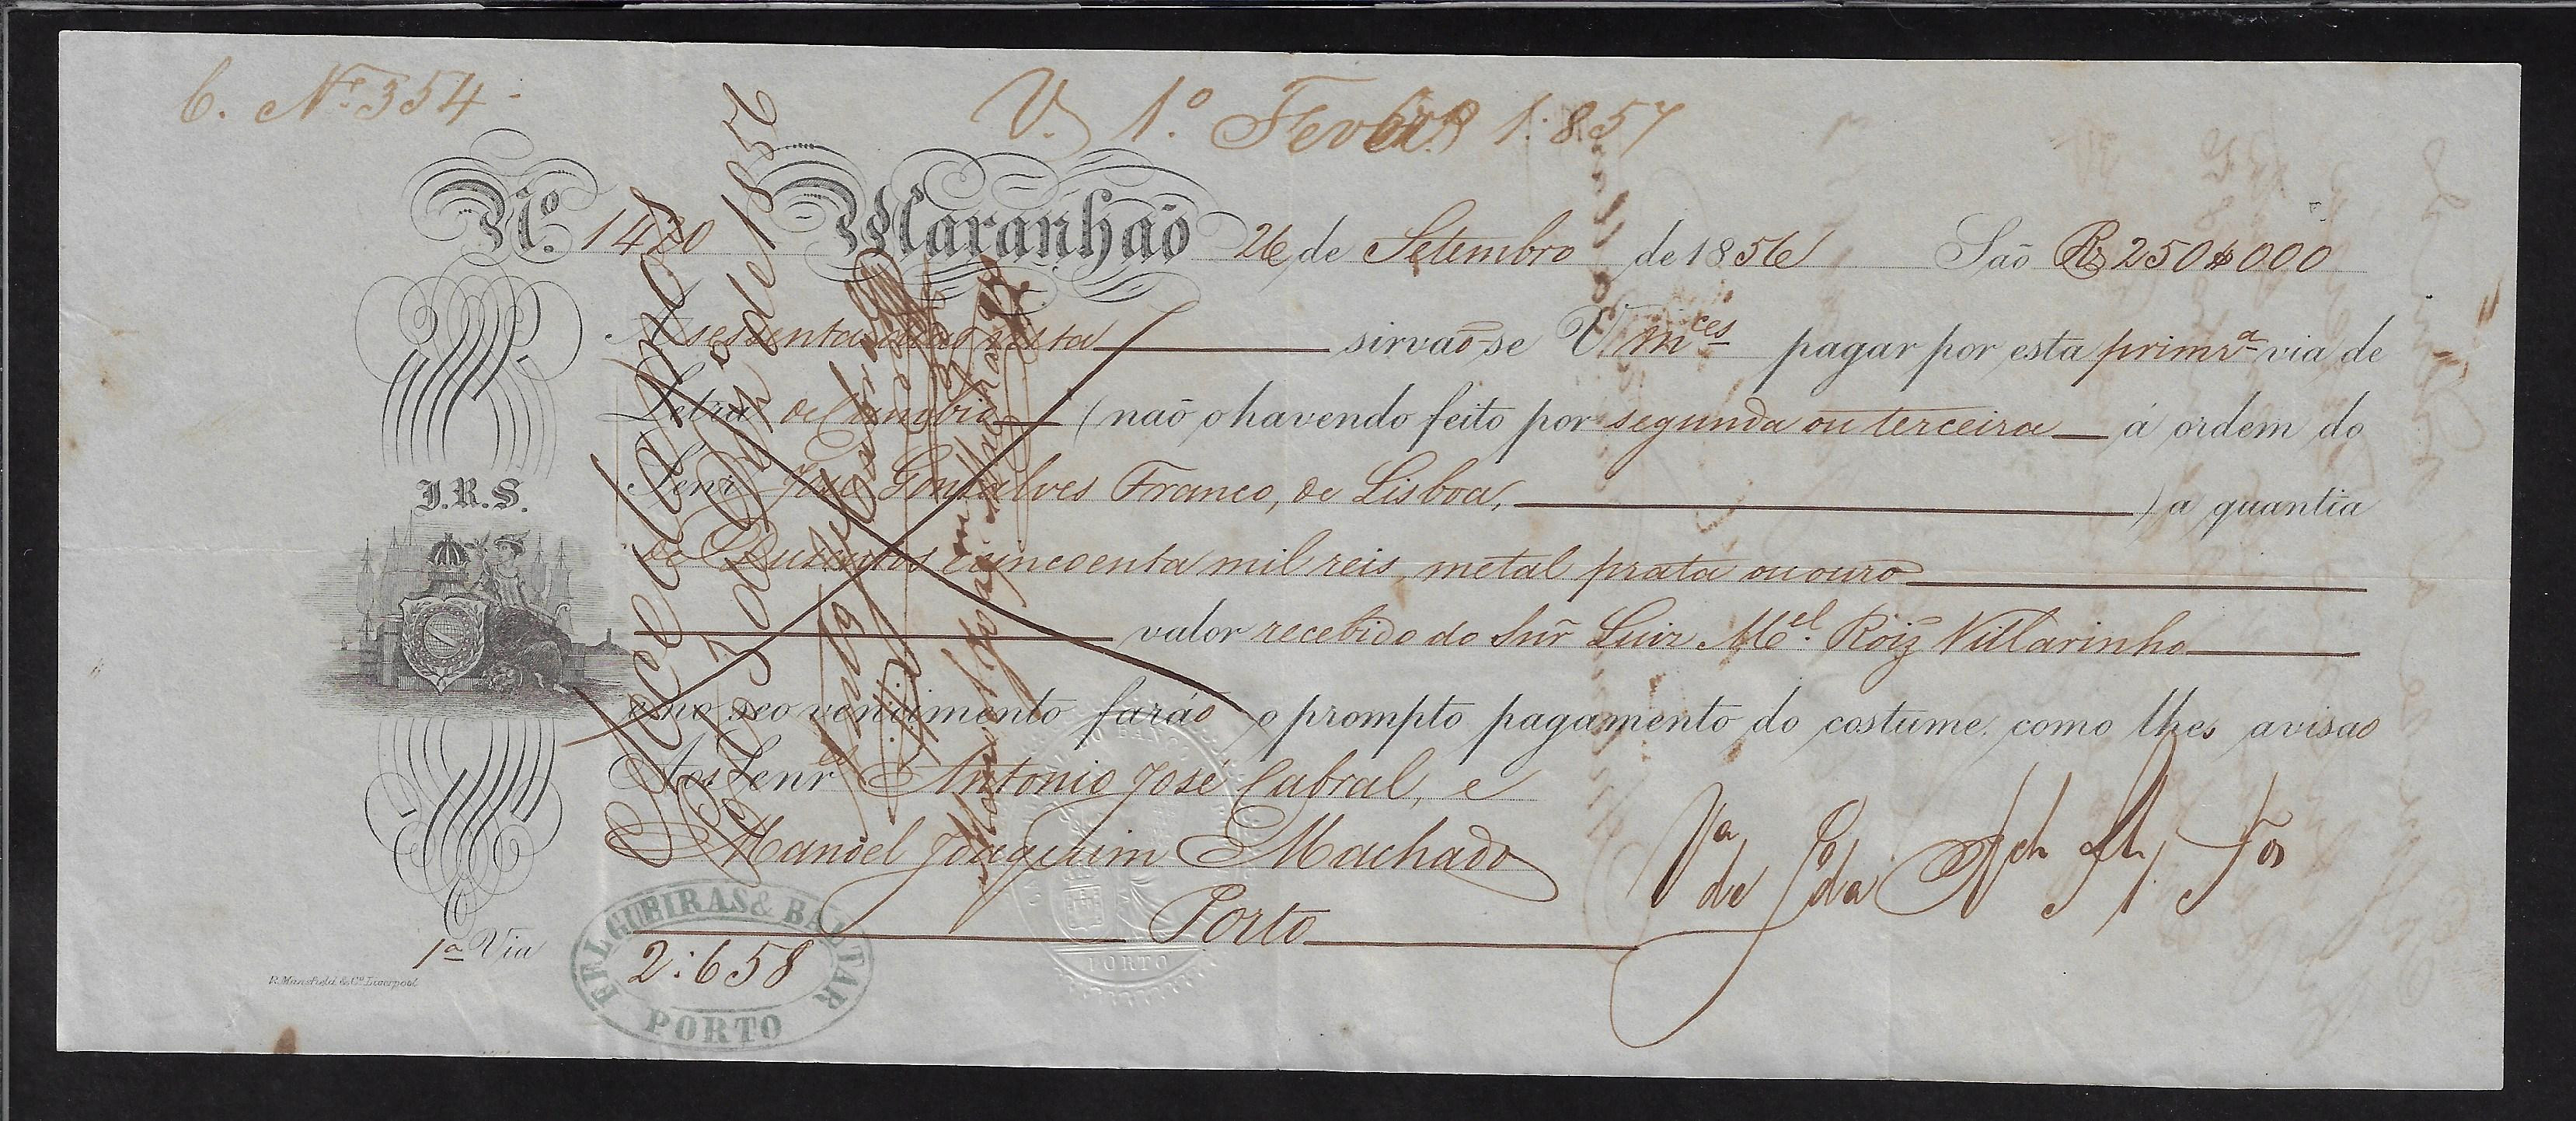 6. Nº 354
V. 1º Fevbrº 1:857
Nº 1420 Maranhão 26 de Setembro de 1856 São Rs 250$000
A sessenta dias vista sirvaõ-se V. mces pagar por esta primra via de
Letra de Cambio (naõ o havendo feito por segunda ou terceira á ordem do
Senr José Gonçalves Franco, de Lisboa, ) a quantia
de Duzentos cincoenta mil reis, metal prata ou ouro
valor recebido do Snr Luiz Mel Roiz Villarinho
e no seo vencimento faráõ o prompto pagamento do costume, como lhes avisaõ
Aos Senres Antonio José Cabral, e
Manoel Joaquim Machado
Porto
J.R.S.
1a Via
R. Mansfield & Co. Liverpool
FELGUEIRAS & BALTAR
2:658
PORTO
Aceitamos
de 1856
Manoel Joaquim Machado
PORTO